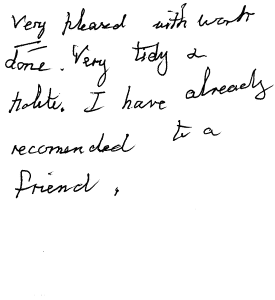 Very pleased with work
done. Very tidy &
polite. I have already
recomended to a
friend.